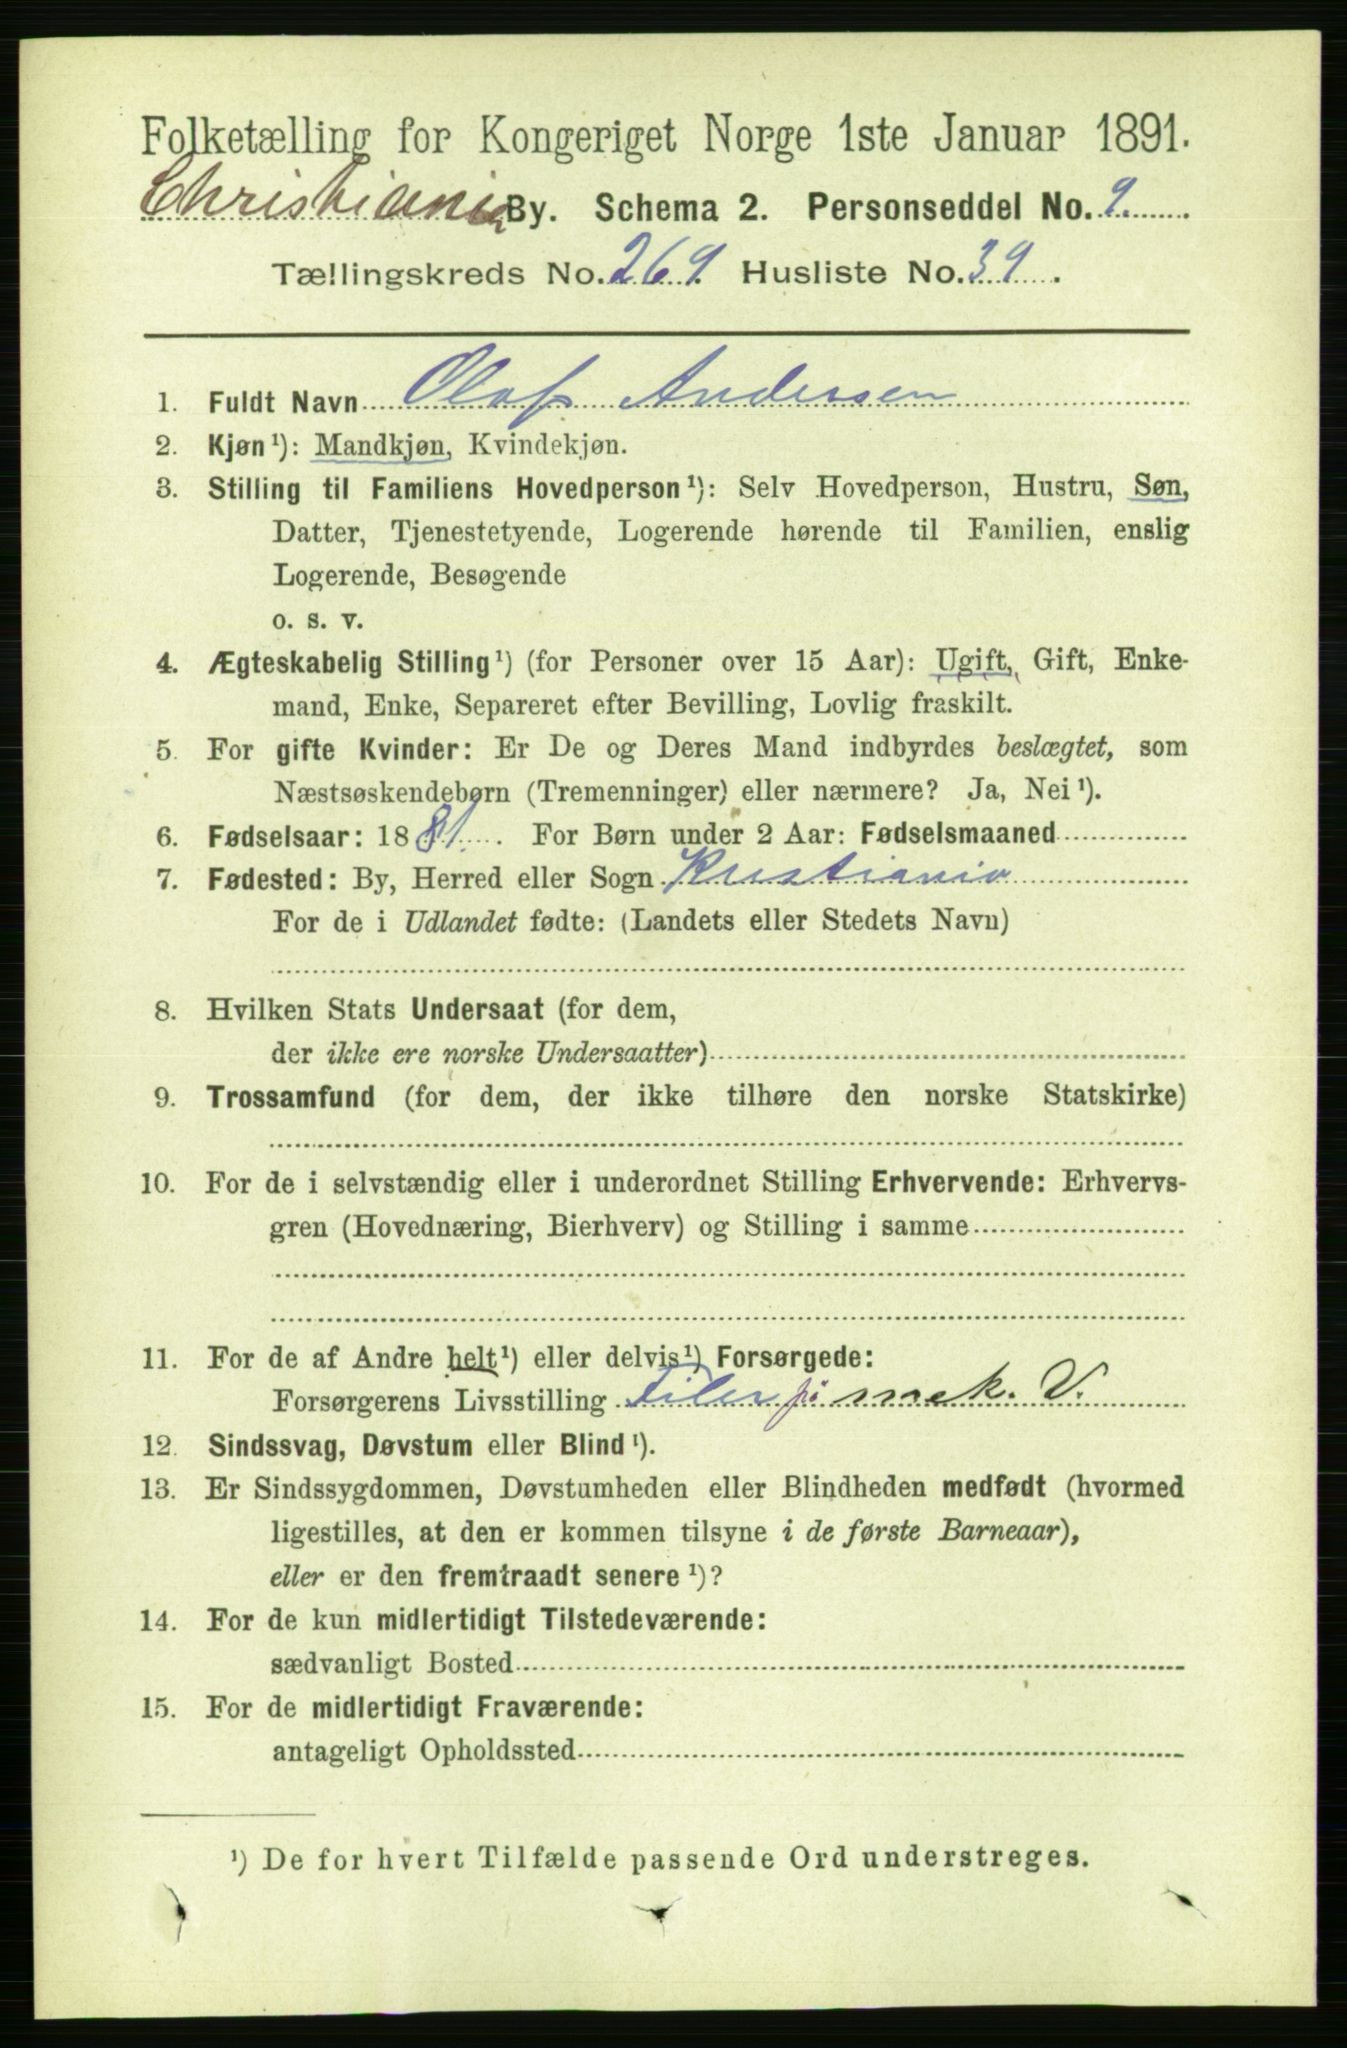 Folketælling for Kongeriget Norge 1ste Januar 1891.
Christiania By. Schema 2. Personseddel No. 9.
Tællingskreds No. 269. Husliste No. 39.
1. Fuldt Navn Olaf Andersen
2. Kjøn¹): Mandkjøn, Kvindekjøn.
3. Stilling til Familiens Hovedperson¹): Selv Hovedperson, Hustru, Søn,
Datter, Tjenestetyende, Logerende hørende til Familien, enslig
Logerende, Besøgende
o. s. v.
4. Ægteskabelig Stilling¹) (for Personer over 15 Aar): Ugift, Gift, Enke-
mand, Enke, Separeret efter Bevilling, Lovlig fraskilt.
5. For gifte Kvinder: Er De og Deres Mand indbyrdes beslægtet, som
Næstsøskendebørn (Tremenninger) eller nærmere? Ja, Nei¹).
6. Fødselsaar: 1881. For Børn under 2 Aar: Fødselsmaaned
7. Fødested: By, Herred eller Sogn Kristiania
For de i Udlandet fødte: (Landets eller Stedets Navn)
8. Hvilken Stats Undersaat (for dem,
der ikke ere norske Undersaatter)
9. Trossamfund (for dem, der ikke tilhøre den norske Statskirke)
10. For de i selvstændig eller i underordnet Stilling Erhvervende: Erhvervs-
gren (Hovednæring, Bierhverv) og Stilling i samme
11. For de af Andre helt¹) eller delvis¹) Forsørgede:
Forsørgerens Livsstilling Filer på mek. V.
12. Sindssvag, Døvstum eller Blind¹).
13. Er Sindssygdommen, Døvstumheden eller Blindheden medfødt (hvormed
ligestilles, at den er kommen tilsyne i de første Barneaar),
eller er den fremtraadt senere¹)?
14. For de kun midlertidigt Tilstedeværende:
sædvanligt Bosted
15. For de midlertidigt Fraværende:
antageligt Opholdssted
¹) De for hvert Tilfælde passende Ord understreges.